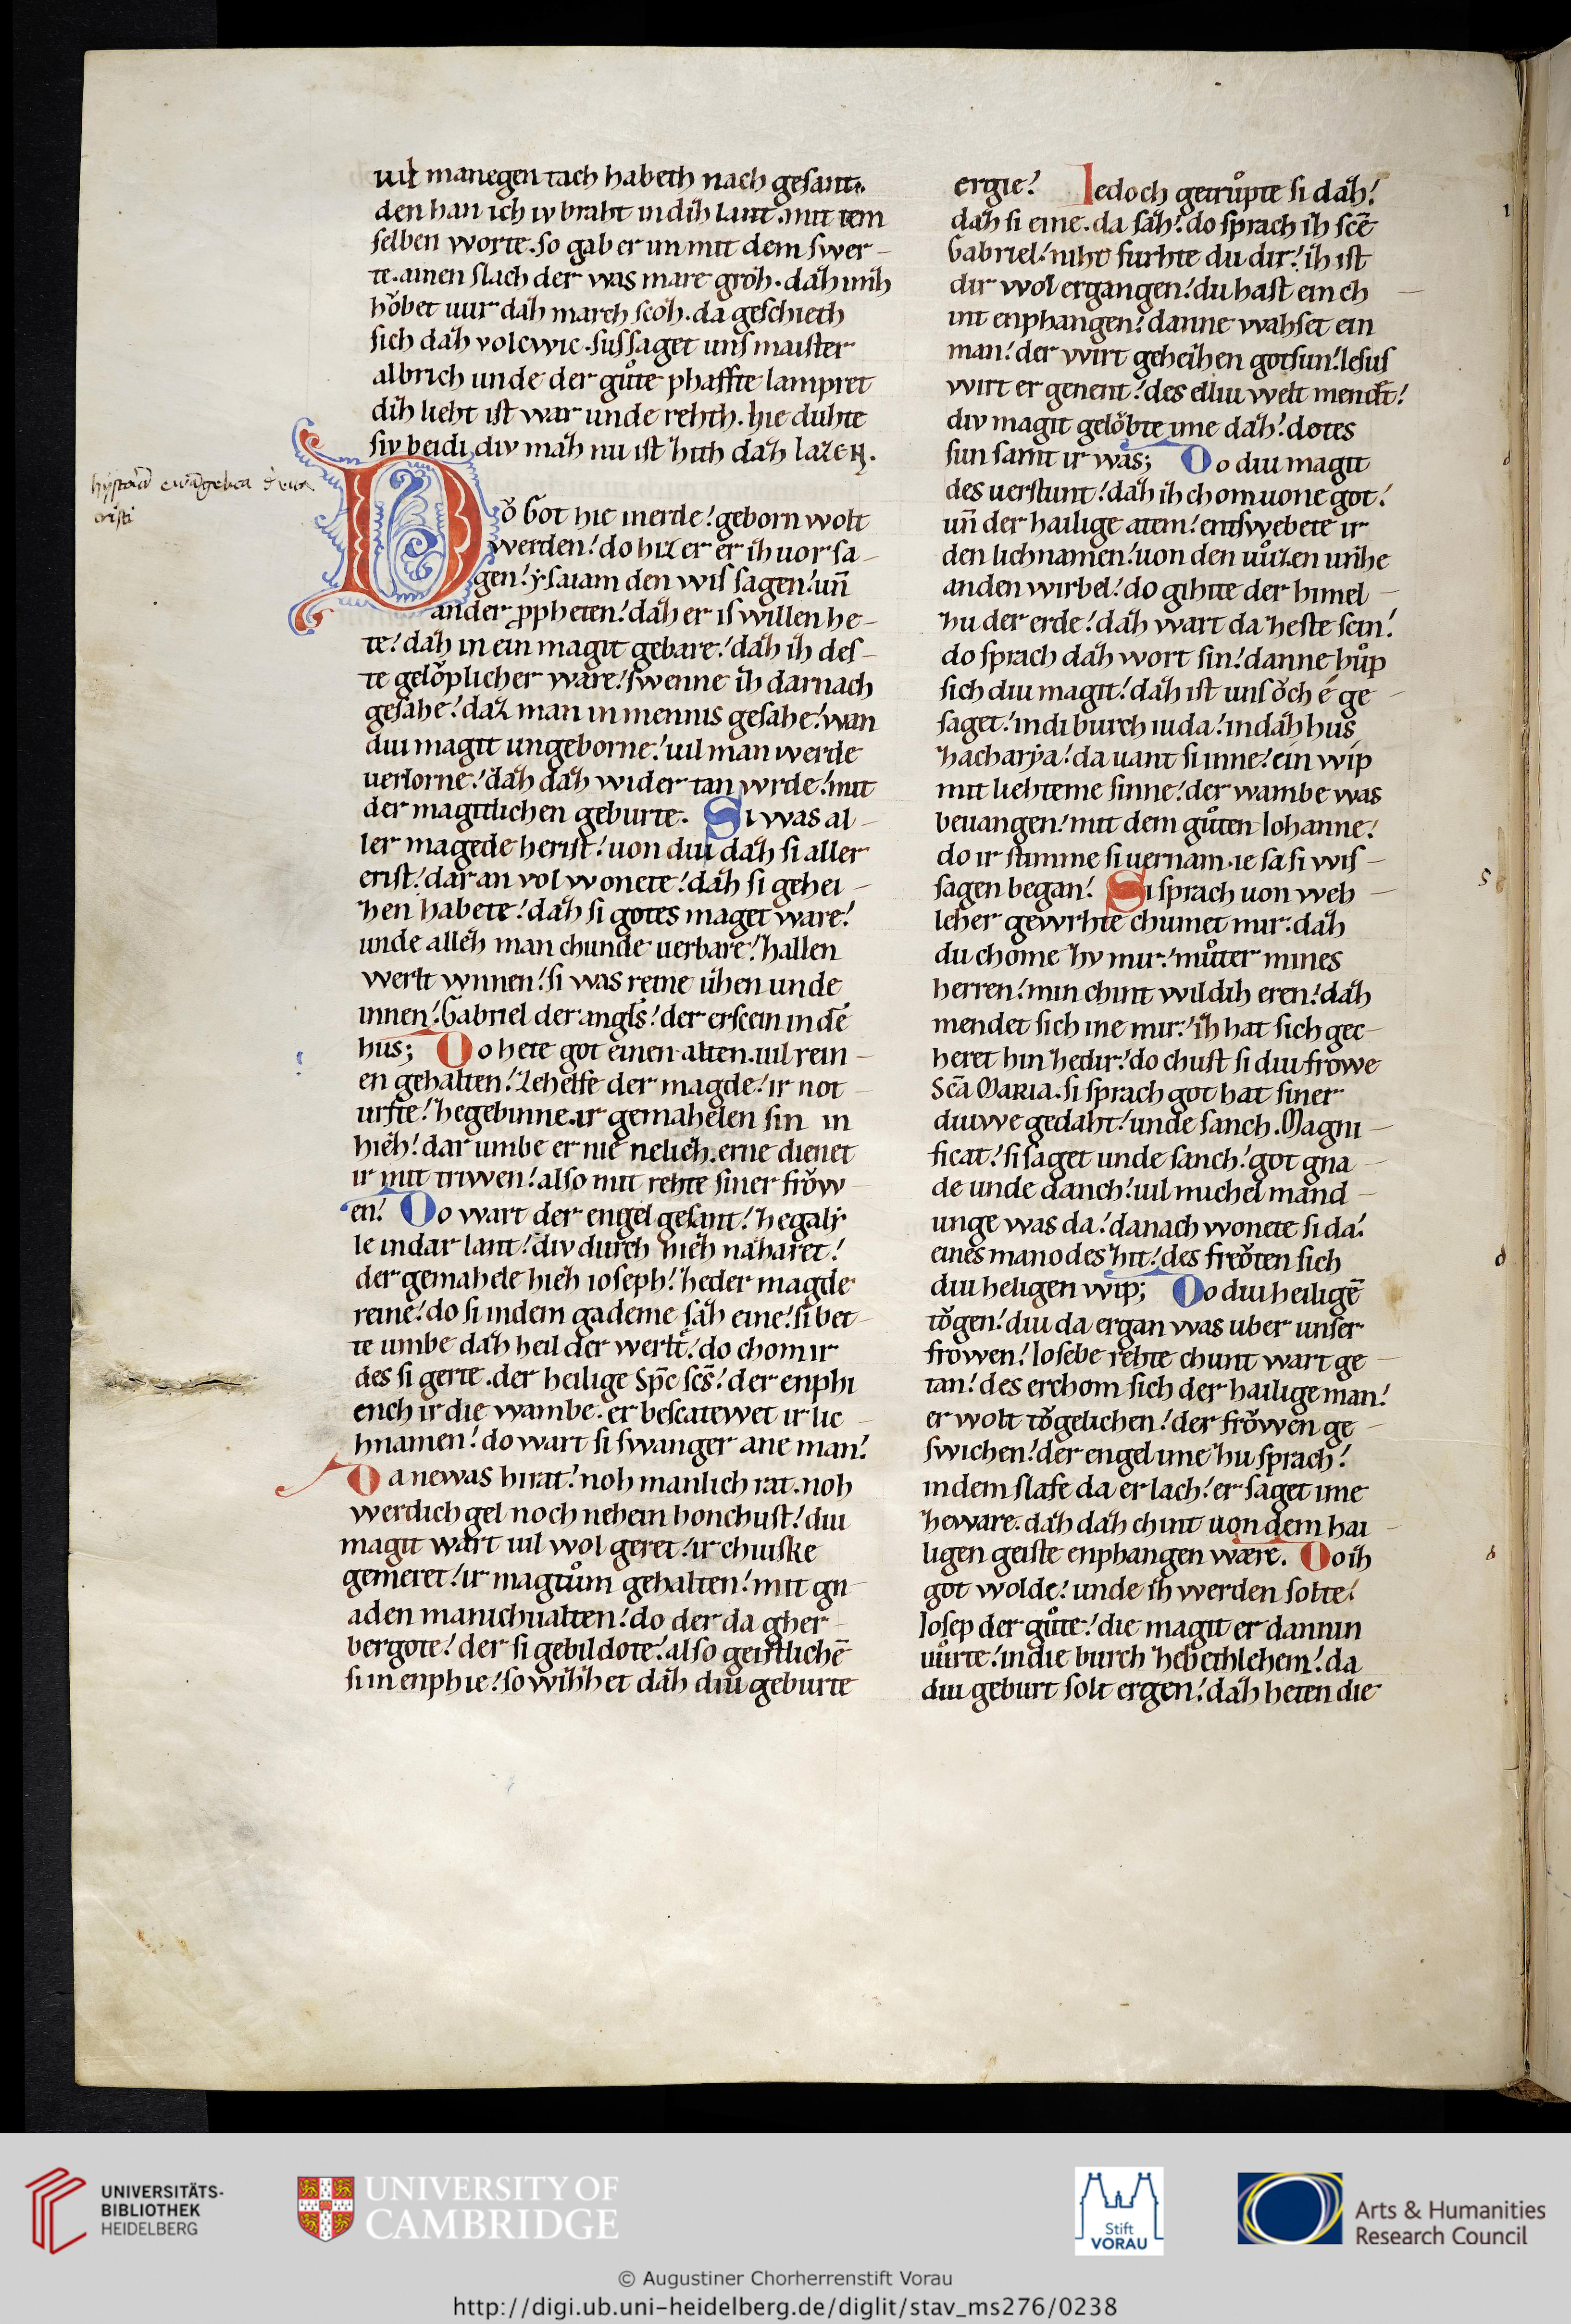 uil manegen tach habeth nach gesant.
den han ich iv braht indih lant. mit tem
selben worte. so gab er un mit dem swer-
te. ainen slach der was mare groh. dah imh
hŏbet uur dah march scoh. da geschieth
sich dah volcwic. sus saget uns maister
albrich unde der gůte phaffte lampret
dih lieht ist war unde rehth. hie duhte
siv beidi div mah nu ist hith dah lazen.
hystoria ewangelica de vita
cristi
Dŏ Got hie inerde! geborn wolt
werden! do hiz er er ih uor sa-
gen! ẏsaiam den wissagen! uñ
ander ꝓpheten! dah er is willen he-
te! dah in ein magit gebare! dah ih des-
te gelŏplicher ware! swenne ih darnach
gesahe! daz man in mennis gesahe! wan
diu magit ungeborne! uil man werde
uerlorne! dah dah wider tan wrde! mit
der magitlichen geburte. Si was al-
ler magede herist! uon diu dah si aller
erist! dar an vol wonete! dah si gehei-
hen habete! dah si gotes maget ware!
unde alleh man chunde uerbare! hallen
werlt wnnen! si was reine uhen unde
innen! Gabriel der angls! der erscein in dē
hus; Do hete got einen alten. uil rein-
en gehalten! zehelfe der magde! ir not-
urfte! hegebinne. ir gemahelen sin in
hieh! dar umbe er nie nelieh. erne dienet
ir mit triwen! also mit rehte siner frŏw-
en! Do wart der engel gesant! hegaly
le indar lant! div durch hieh naharet!
der gemahele hieh ioseph! heder magde
reine! do si indem gademe sah eine! si bet-
te umbe dah heil der werlt! do chom ir
des si gerte. der heilige Sp̄c sc̄s! der enphi
ench ir die wambe. er bescatewet ir lic-
hnamen! do wart si swanger ane man!
Da newas hirat! noh manlich rat. noh
werdich gel noch nehein honchust! diu
magit wart uil wol geret! ir chuiske
gemeret! ir magtům gehalten! mit gn-
aden manichualten! do der da gher-
bergote! der si gebildote! also geistlichē
si in enphie! so wihhet dah diu geburte
ergie! Iedoch getrůpte si dah!
dah si eine. da sah! do sprach ih scē
Gabriel! niht furhte du dir! ih ist
dir wol ergangen! du hast ein ch-
int enphangen! danne wahset ein
man! der wirt geheihen gotsun! Iesus
wirt er genent! des elliu welt mendet!
div magit gelŏbte ime dah! dotes
sun samt ir was; Do diu magit
des uerstunt! dah ih chom uone got!
uñ der hailige atem! entswebete ir
den lichnamen! uon den uůzen unhe
anden wirbel! do gihite der himel-
hu der erde! dah wart da heste scin!
do sprach dah wort sin! danne hůp
sich diu magit! dah ist uns ŏch é ge-
saget! indi burch iuda! indah hus
hacharẏa! da uant si inne! ein wip
mit liehteme sinne! der wambe was
beuangen! mit dem gůten Iohanne!
do ir stimme si uernam. ie sa si wis-
sagen began! Si sprach uon weh-
leher gewrhte chumet mir. dah
du chome hv mir! můter mines
herren! min chint wil dih eren! dah
mendet sich ine mir! ih hat sich gec-
heret hin hedir! do chust si diu frowe
Scā Maria. si sprach got hat siner
diuwe gedaht! unde sanch. Magni-
ficat! si saget unde sanch! got gna-
de unde danch! uil michel mand-
unge was da! danach wonete si da!
eines manodes hit! des freŏten sich
diu heligen wip; Do diu heiligē
tŏgen! diu da ergan was uber unser
frowen! Iosebe rehte chunt wart ge-
tan! des erchom sich der hailige man!
er wolt tŏgelichen! der frŏwen ge-
swichen! der engel ime hu sprach!
indem slafe da er lach! er saget ime
heware. dah dah chint uon dem hai-
ligen geiste enphangen wære. Do ih
got wolde! unde ih werden solte!
Iosep der gůte! die magit er dannin
uůrte! indie burch hebethlehem! da
diu geburt solt ergen! dah heten die
UNIVERSITÄTS-
BIBLIOTHEK
HEIDELBERG
UNIVERSITY OF
CAMBRIDGE
Stift
VORAU
Arts & Humanities
Research Council
© Augustiner Chorherrenstift Vorau
http://digi.ub.uni-heidelberg.de/diglit/stav_ms276/0238